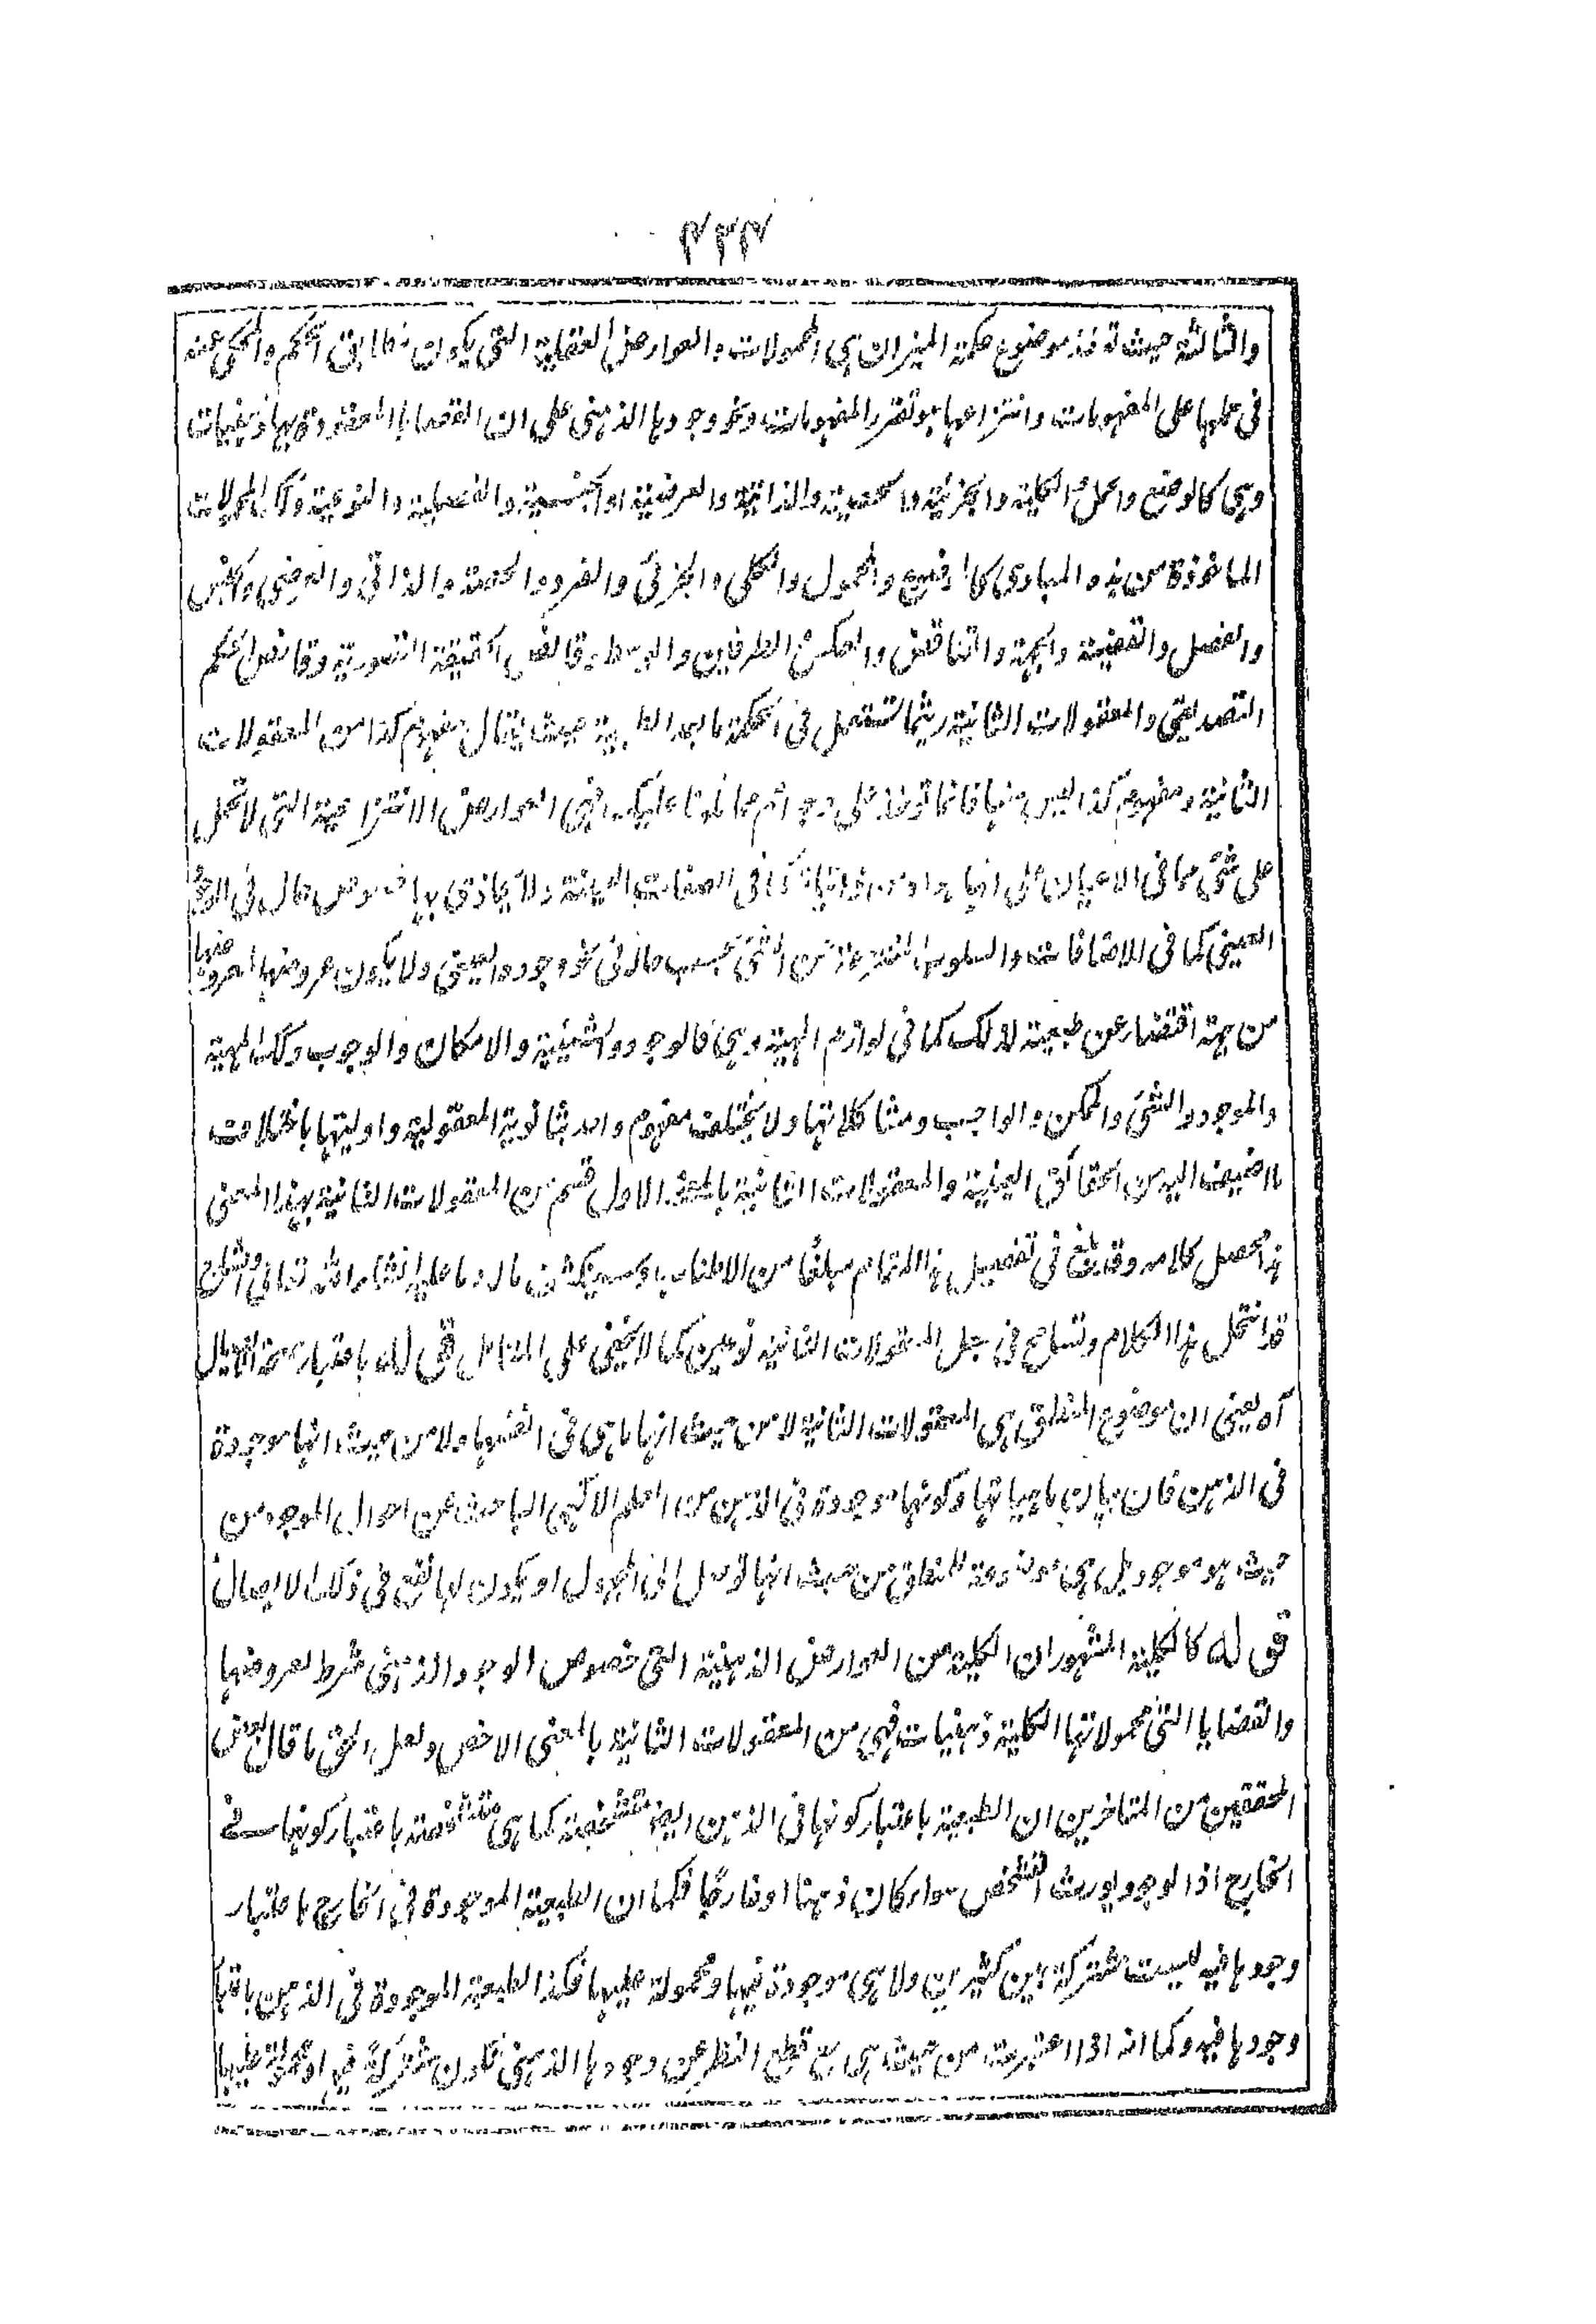 ۲۳۳
والثالثة حيث تؤخذ موضوع حكمة الميزان هى المحمولات والعوارض العقلية التى يكون مطابق الحكم والمحكى عنه
فى حملها على المفهومات وانتزاعها هو تقرر المفهومات ونحو وجودها الذهنى على ان القضايا المعقودة بها ذهنيات
وهى كالوضع والحمل والكلية والجزئية والذاتية والعرضية والجنسية والفصلية والنوعية وكذا المحمولات
الماخوذة من هذه المبادى كالموضوع والمحمول والكلى والجزئى والفرد والحصة والذاتى والعرضى والجنس
والفصل والقضية والجهة والتناقض والعكس والطرفين والوسط الحقيقة التصورية الحكم
التصديقى والمعقولات الثانية ربما تستعمل فى الحكمة ما بعد الطبيعة حيث يقال مفهوم كذا من المعقولات
الثانية ومفهوم كذا ليس منها فانما تؤخذ على وجه اعم مما تلونا عليك فهى العوارض الانتزاعية التى لا تحمل
على شئ مما فى الاعيان على ذاتيا كما فى الصفات ولا يحاذى بها خصوص حال فى
العينى كما فى الاضافات والسلوب المنتزعة من الشئ بحسب حاله فى نحو وجوده العينى ولا يكون عروضها لمعروضها
من جهة اقتضاء عن طبيعة لذلك كما فى لوازم المهية وهى كالوجود والشيئية والامكان والوجوب وكذا المهية
والموجود والشئ والممكن والواجب ومشاكلاتها ولا يختلف مفهوم واحد بثانوية المعقولية واوليتها باختلاف
ما اضيف اليه من الحقائق العينية والمعقولات الثانية بالمعنى الاول قسم من المعقولات الثانية بهذا المعنى
هذا محصل كلامه وقد بلغ فى تفصيل هذا المقام مبلغا من الاطناب وسيكشف ما له وما عليه انشاء الله تعالى والشارح
قد انتحل هذا الكلام وتسامح فى جعل المعقولات الثانية نوعين كما لا يخفى على المتامل قوله باعتبار صحة الايصال
آه يعنى ان موضوع المنطق هى المعقولات الثانية لا من حيث انها ما هى فى انفسها ولا من حيث انها موجودة
فى الذهن فان بيان ماهياتها وكونها موجودة فى الذهن من العلم الالهى الباحث عن احوال الموجود من
حيث هو موجود بل هى موضوعة للمنطق من حيث انها توصل الى المجهول او يكون لها نفع فى ذلك الايصال
قوله كالكلية المشهور ان الكلية من العوارض الذهنية التى خصوص الوجود الذهنى شرط لعروضها
والقضايا التى محمولاتها الكلية ذهنيات فهى من المعقولات الثانية بالمعنى الاخص ولعل الحق ما قال بعض
المحققين من المتاخرين ان الطبيعة باعتبار كونها فى الذهن ايضا متشخصة كما هى متشخصة باعتبار كونها فى
الخارج اذ الوجود يورث التشخص سواء كان ذهنا او خارجا فكما ان الطبيعة الموجودة فى الخارج باعتبار
وجودها فيه ليست مشتركة بين كثيرين ولا هى موجودة فيها ومحمولة عليها فكذا الطبيعة الموجودة فى الذهن باعتبار
وجودها فيه وكما انه اذا اعتبرت من حيث هى مع قطع النظر عن وجودها الذهنى تكون مشتركة فيه او محمولة عليها